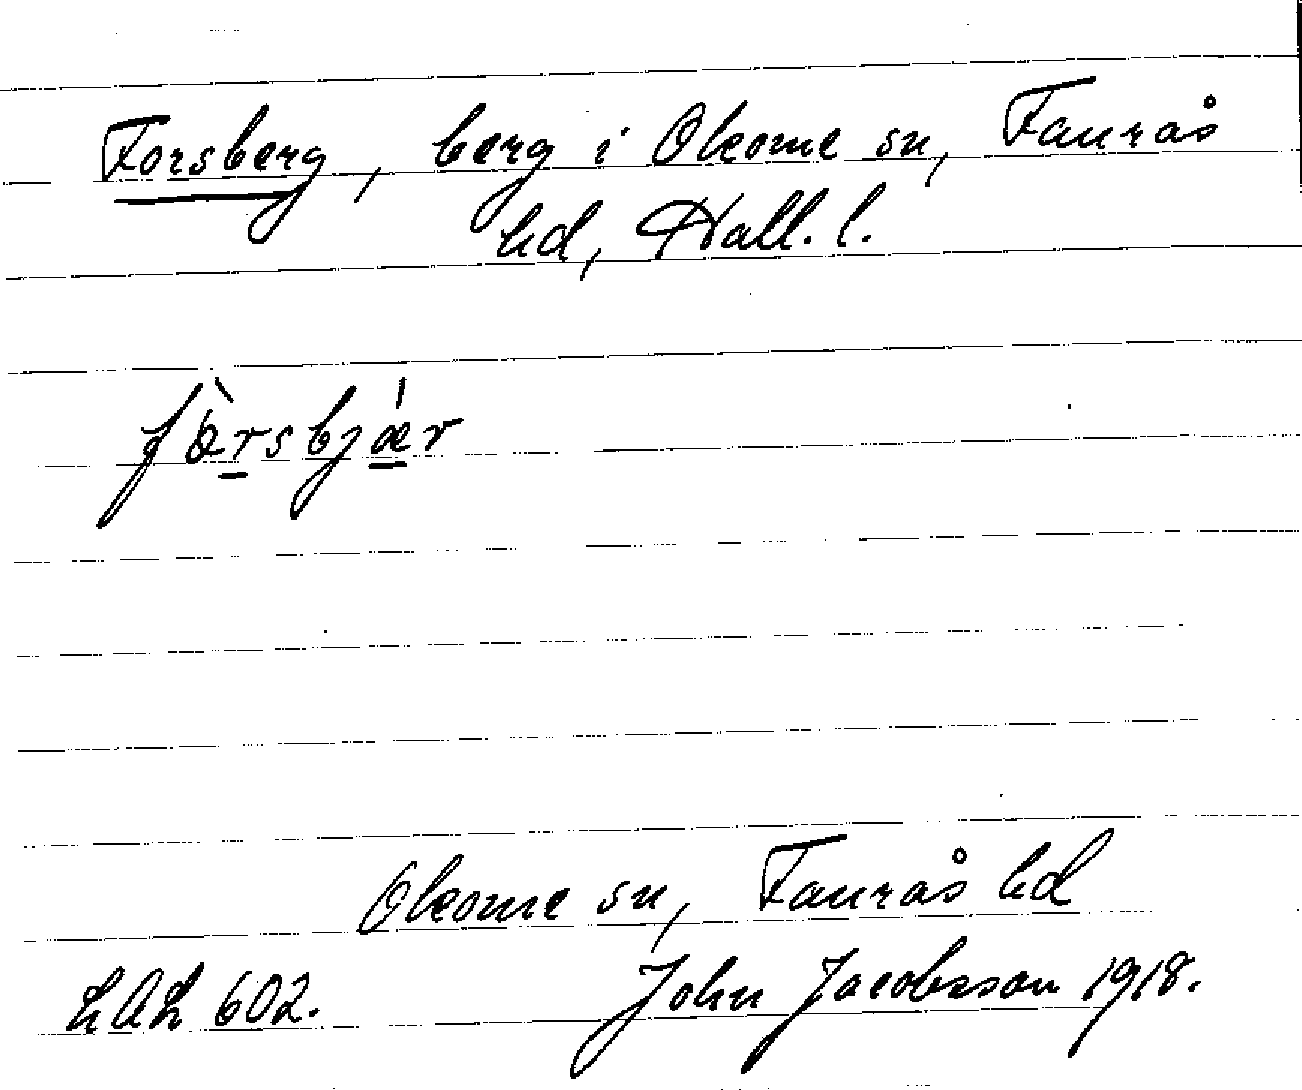 Forsberg, berg i Okome sn, Faurås
hd, Hall. l.
fàrsbjǽr
Okome sn, Faurås hd
LAL 602. John Jacobsson 1918.